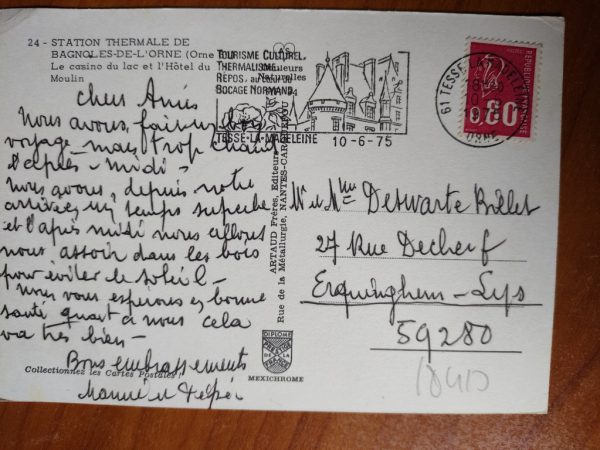 24 - STATION THERMALE DE
BAGNOLES-DE-L'ORNE (Orne
Le casino du lac et l'Hôtel du
Moulin
TOURISME CULTUREL,
THERMALISME,
REPOS, au cœur du
BOCAGE NORMAND
Couleurs
Naturelles
TESSE-LA-MADELEINE
10-6-75
61 TESSE
ORNE
REPUBLIQUE FRANCAISE
0,80
chers Amis
Nous avons, fait un bon
voyage - mais trop chaud
l'après - midi -
Nous avons, depuis notre
arrivée, un temps superbe
et l'après midi nous allons
nous assoir dans les bois
pour éviter le soleil -
Nous vous espérons en bonne
santé quant à nous cela
va très bien -
Bons embrassements
ARTAUD Frères, Editeurs
Rue de la Métallurgie, NANTES-CARQUEFOU
Mr et Mme Deswarte Billet
27 Rue Decherf
Erquinghem - Lys
59280
DIPLOME
PRESTIGE
DE LA
FRANCE
MEXICHROME
Collectionnez les Cartes Postales